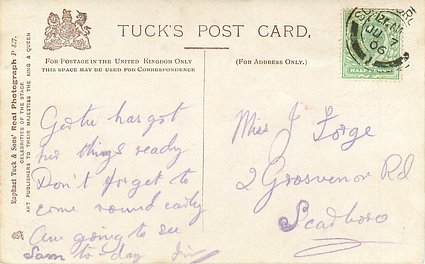 TUCK'S POST CARD.
FOR POSTAGE IN THE UNITED KINGDOM ONLY
THIS SPACE MAY BE USED FOR CORRESPONDENCE
(FOR ADDRESS ONLY.)
Raphael Tuck & Sons' Real Photograph P 527.
CELEBRITIES OF THE STAGE
ART PUBLISHERS TO THEIR MAJESTIES THE KING & QUEEN
Gertie has got
her things ready
Don't forget to
come round early
Am going to see
Sam to-day
Miss J Forge
2 Grosvenor Rd
Scadboro
JU
06
HALF